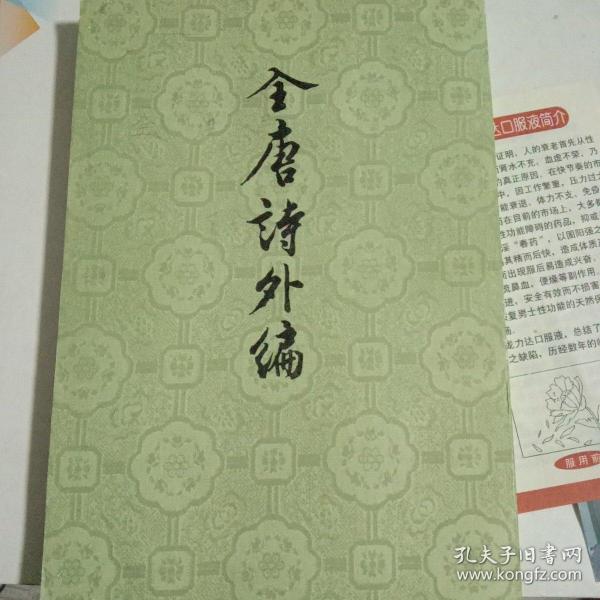 全唐詩外編
达口服液简介
证明，人的衰老首先从性
肾水不充，血虚不荣，乃
的真正原因，在快节奏的
中，因工作繁重，压力过
能衰退、体力不支、免
而在目前的市场上，大多
性功能障碍的药品，抑或
淫“春药”，以固阳强之
其精而后快，造成体质
所出现服后易造成兴奋、
流鼻血，便燥等副作用，
进，安全有效而不损害
复男士性功能的天然保
龙力达口服液，总结了
之缺陷，历经数年的
服用前
孔夫子旧书网
www.kongfz.com